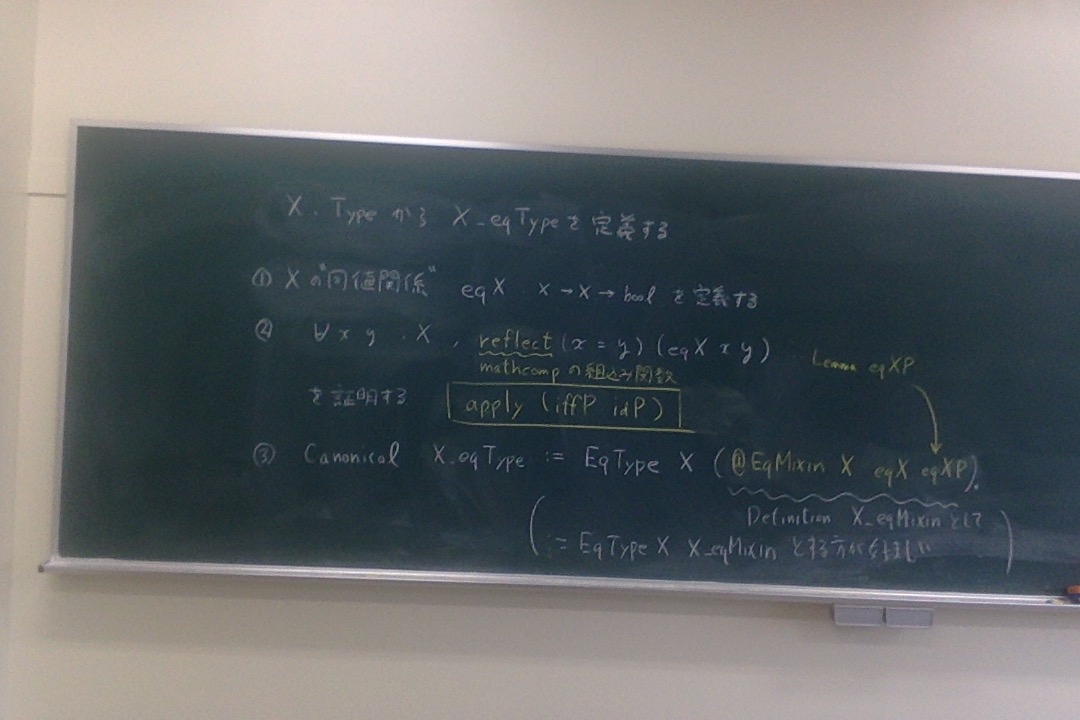 X : Type から X_eqType を定義する
① X の "同値関係" eqX : X → X → bool を定義する
② ∀ x y : X , reflect (x = y) (eqX x y)
mathcomp の組込み関数
Lemma eqXP
を証明する
apply (iffP idP)
③ Canonical X_eqType := EqType X (@EqMixin X eqX eqXP).
( Definition X_eqMixin として
:= EqType X X_eqMixin とする方が好ましい )